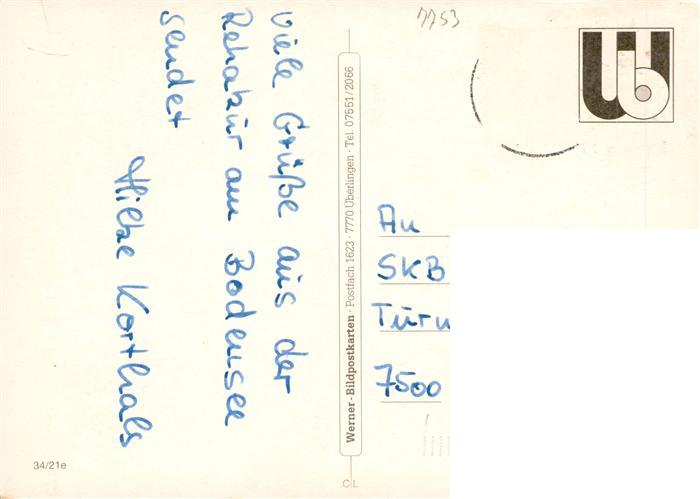 Viele Grüße aus der
Rehakur am Bodensee
sendet
Korthals
7753
Werner-Bildpostkarten · Postfach 1623 · 7770 Überlingen · Tel. 07551/2066
An
SKB
Turn
7500
34/21e
CL